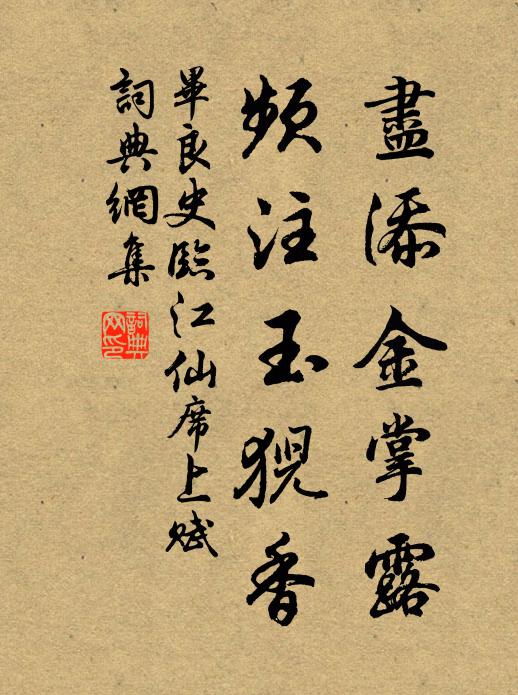 盡添金掌露
頻注玉猊香
畢良史臨江仙席上賦
詞典網集
詞典網印